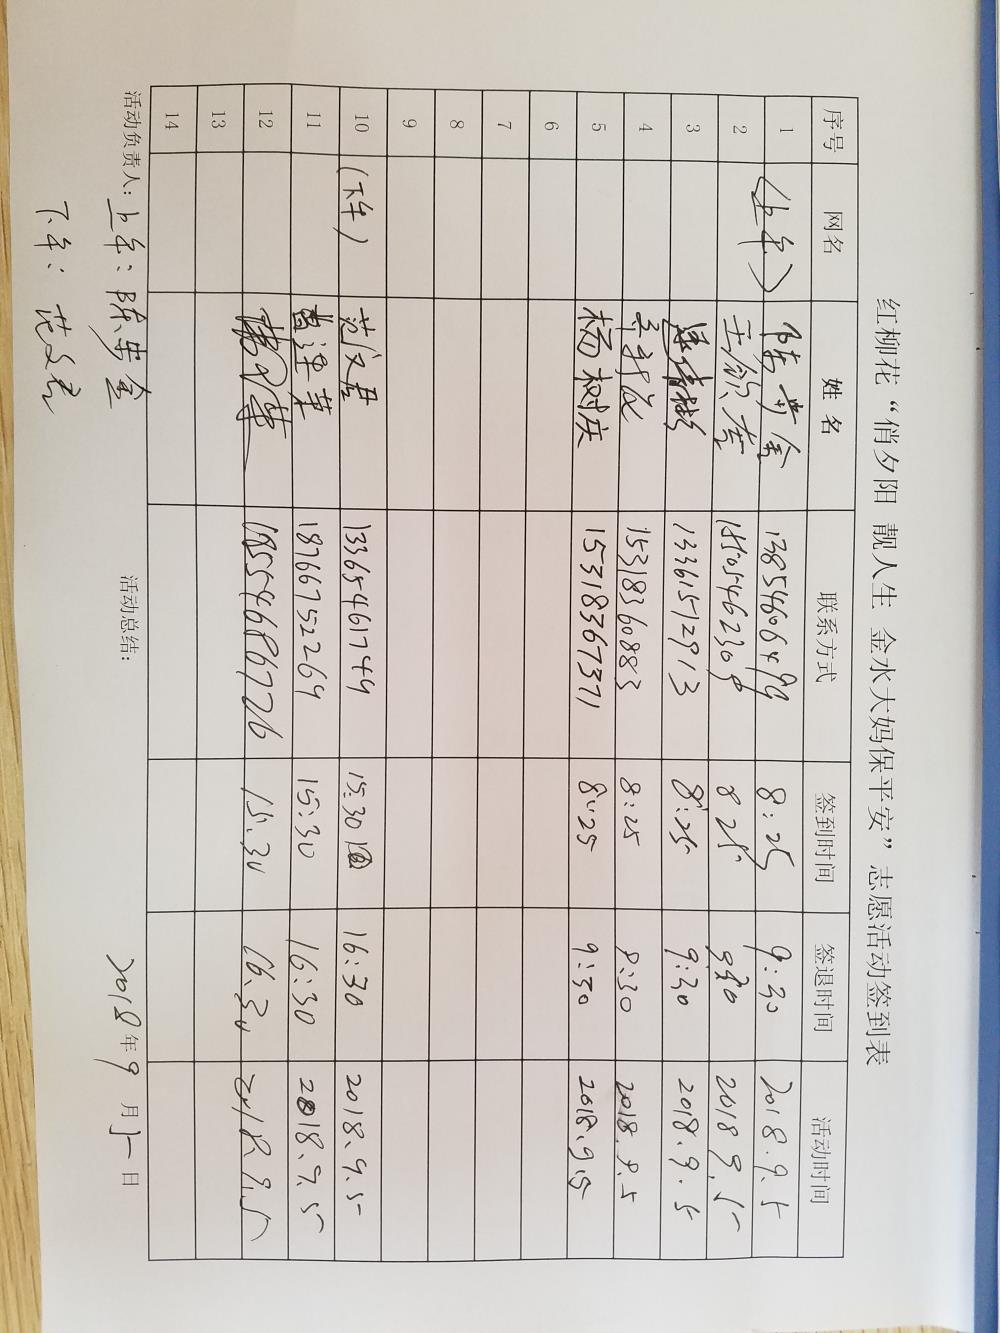 红柳花“俏夕阳 靓人生 金水大妈保平安”志愿活动签到表
序号 网名 姓名 联系方式 签到时间 签退时间 活动时间
1 (上午) 13854606499 8:25 9:30 2018.9.5
2 8 25 2018 9.5
3 13361512913 8:25 9:30 2018.9.5
4 15318360883 8:25 8:30 2018.9.5
5 杨树庆 15318367371 8:25 9:30 2018.9.5
6
7
8
9
10 (下午) 范文君 13365461749 15:30 16:30 2018.9.5
11 18766752269 15:30 16:30 2018.9.5
12 18554686726 15:30 16:30 2018.9.5
13
14
活动负责人: 上午: 活动总结: 2018年9月5日
下午: 范文君